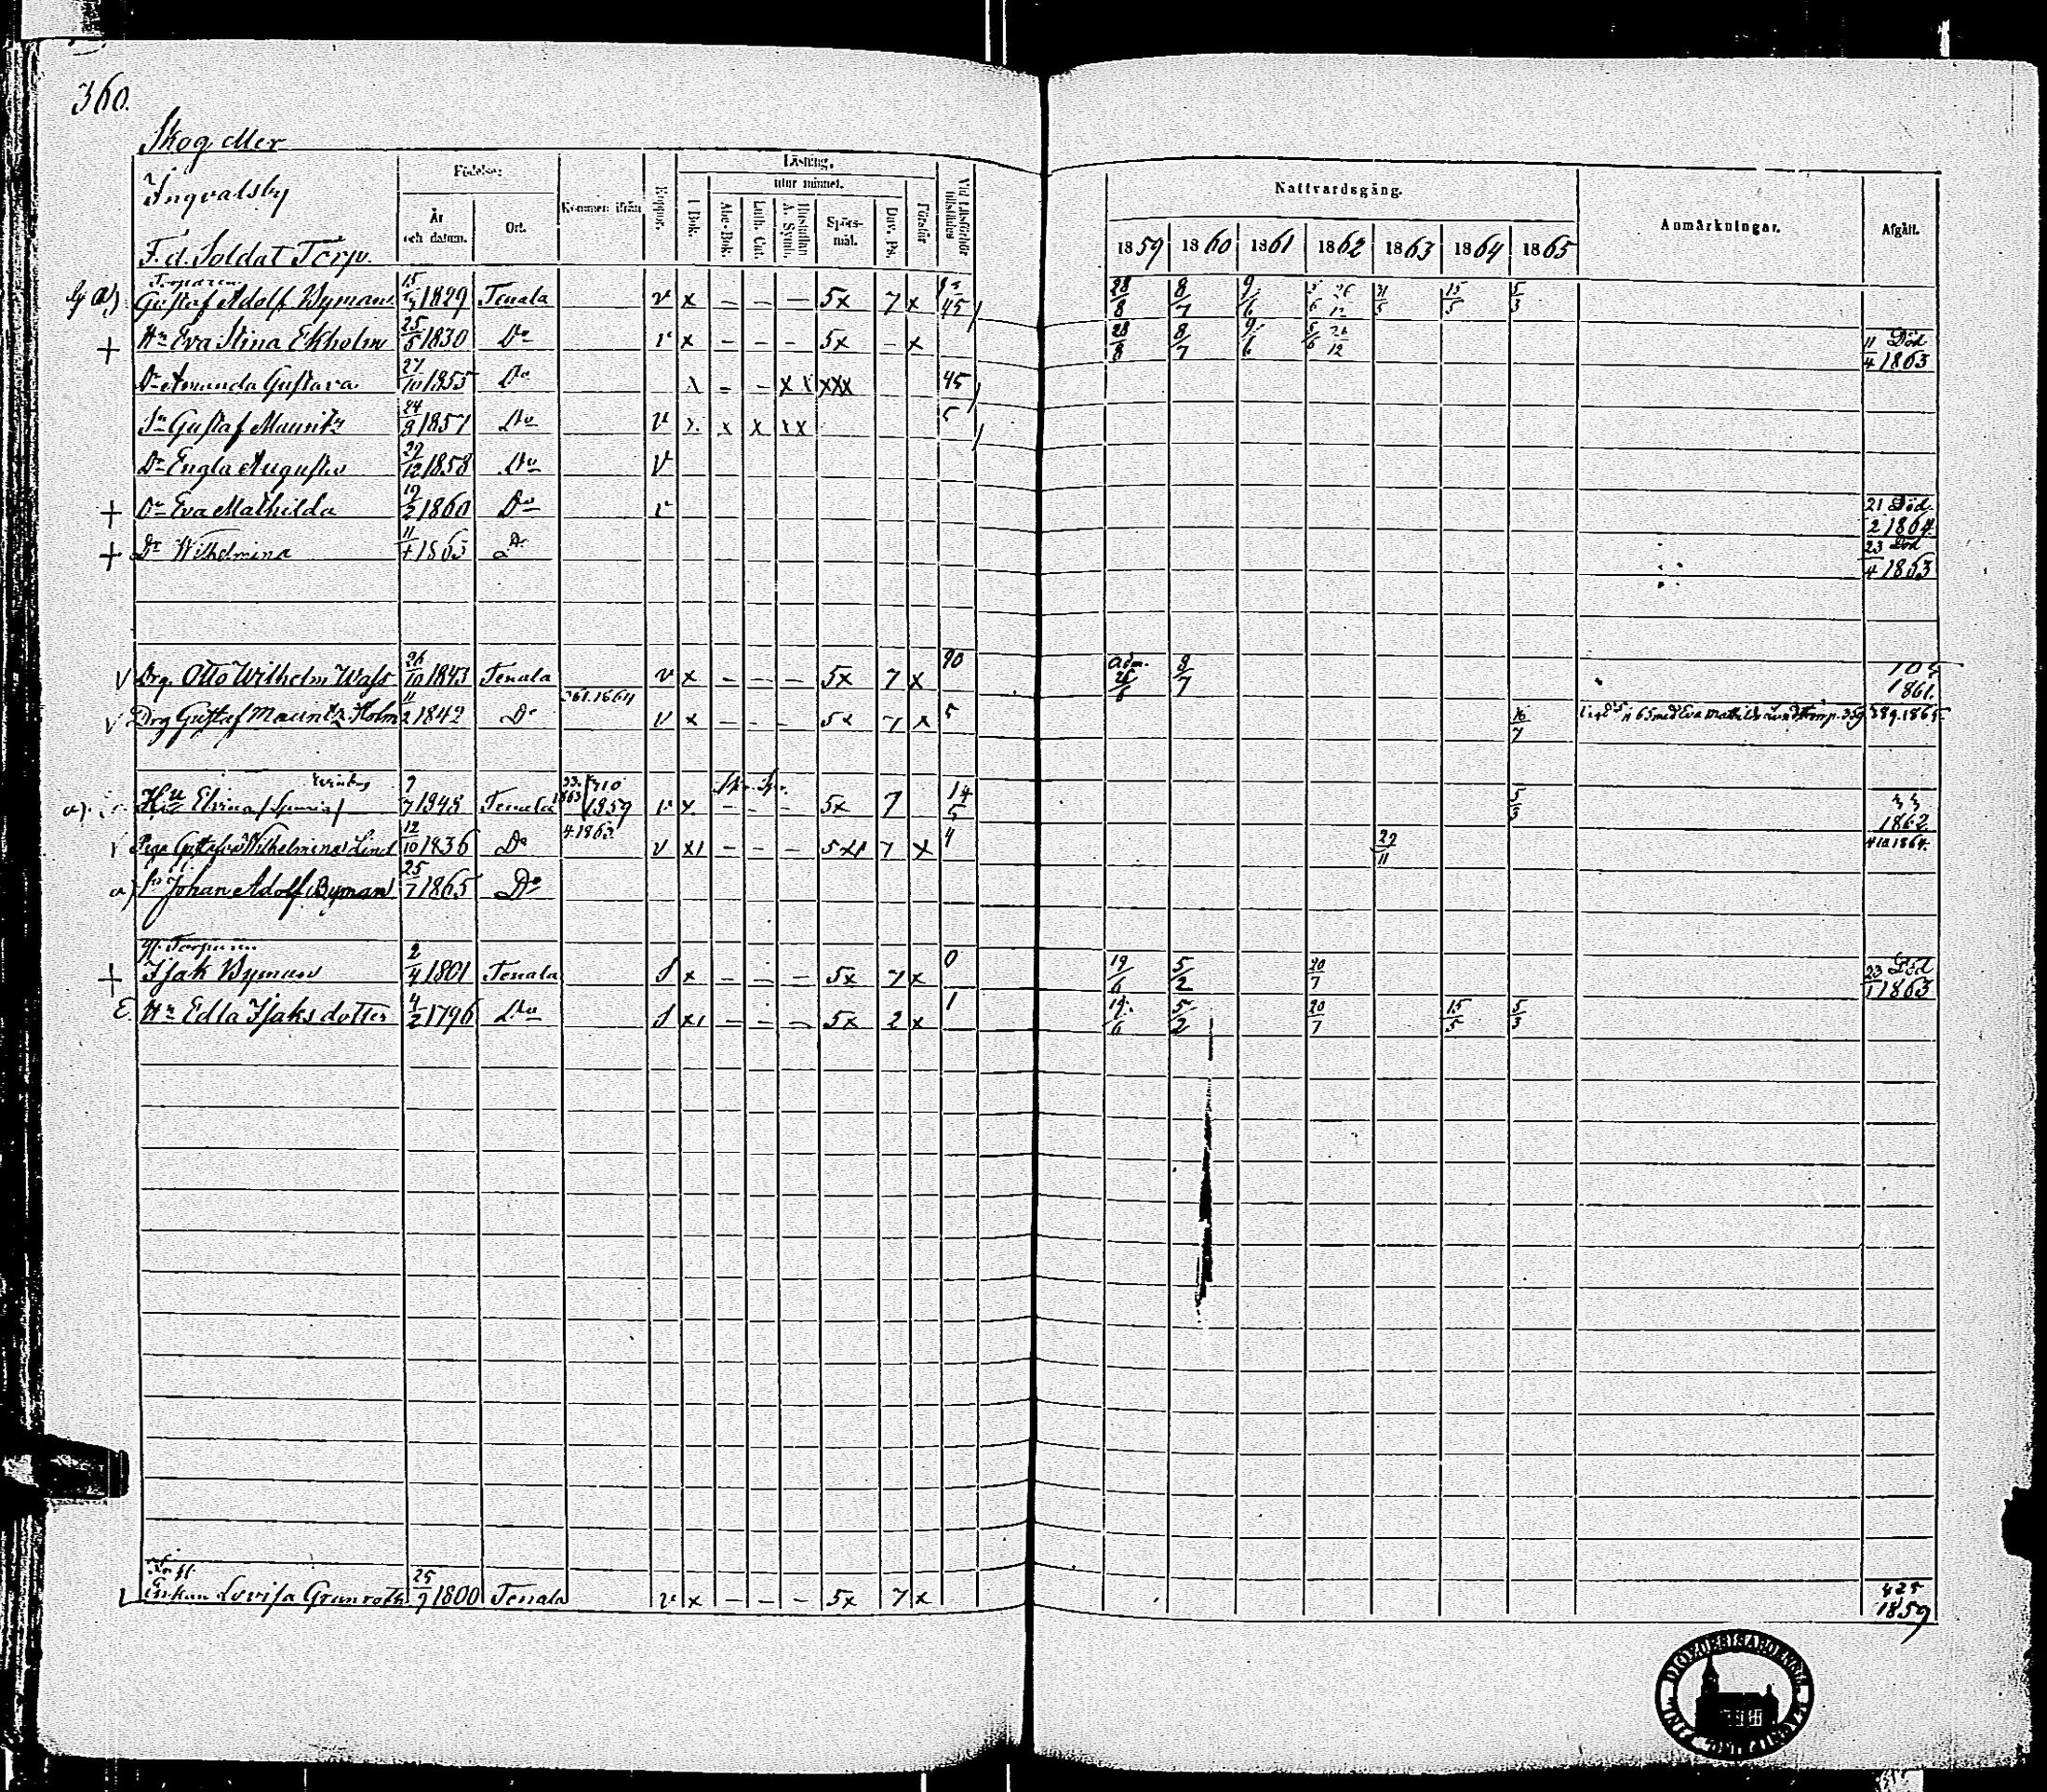 360.
Skog eller
Ingvalsby
F. d. Soldat Torp.
Födelse:
År och datum.
Ort.
Kommen ifrån
Koppor.
Läsning,
I Bok.
utur minnet.
Abc-Bok.
Luth. Cat.
Hustaflan A. Symb.
Spörs-mål.
Dav. Ps.
Förstår
Vid Läsförhör tillstädes
Nattvardsgång.
1859 1860 1861 1862 1863 1864 1865
Anmärkningar.
Afgått.
Gustaf Adolf Byman 1829 Tenala v x — — — 5x 7 x 45 28/8 8/7 9/6 5/6 26/12 31/5 15/5 5/3
+ Hu Eva Stina Ekholm 25/5 1830 Do v x — — — 5x — x 28/8 8/7 9/6 5/6 26/12 11/4 Död 1863
Dr Amanda Gustava 27/10 1855 Do x — — x x xxx 45
Sn Gustaf Mauritz 24/8 1857 Do v x x x xx 5
Dr Engla Augusta 29/12 1858 Do v
+ Dr Eva Mathilda 19/2 1860 Do v 21/2 Död 1864.
+ Dr Wilhelmina 11/4 1863 Do 23/4 Död 1863
v Drg. Otto Wilhelm Wass 26/10 1843 Tenala v x — — — 5x 7 x 90 Adm. 8/7 1861.
v Drg Gustaf Mauritz Holm 11/2 1842 Do 361.1864 v x — — — 5x 7 x 5 16/7 med Eva Mathilda Lundström p. 359 389.1865
a) Hu Elvina 9/7 1843 Tenala 1859 v x — — — 5x 7 14 5 5/3 1862.
Gustafva Wilhelmina Lind 12/10 1836 Do 4.1863 v x1 — — — 7 x 4 22/11 1864.
a) Johan Adolf Byman 25/7 1865 Do
+ Isak Byman 2/4 1801 Tenala S x — — — 5x 7 x 0 19/6 5/2 20/7 23/1 Död 1863
E. Hu Edla Isaksdotter 4/2 1796 Do S x1 — — — 5x 2 x 1 19/6 5/2 20/7 15/5 5/3
v Enkan Lovisa Granroth 25/9 1800 Tenala v x — — — 5x 7 x 425 1859